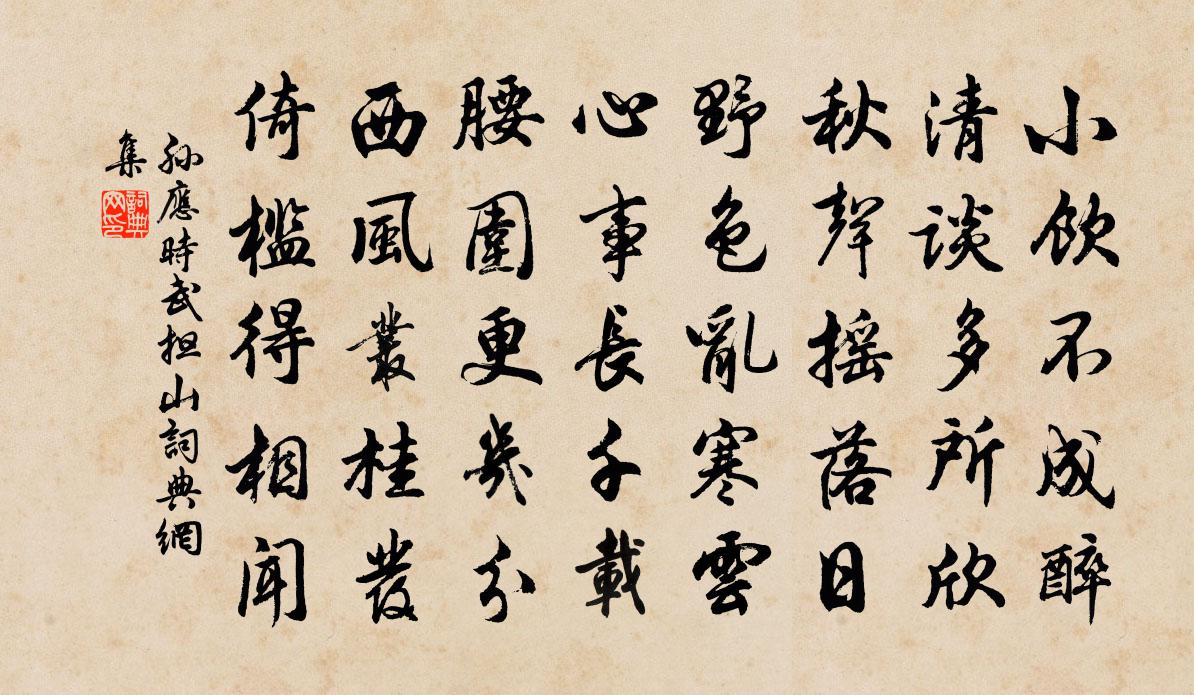 小飲不成醉
清談多所欣
秋聲搖落日
野色亂寒雲
心事長千載
腰圍更幾分
西風叢桂發
倚檻得相聞
孫應時武担山詞典網
集
詞典
网印